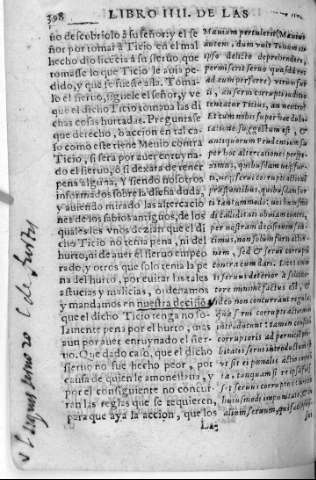 398 LIBRO IIII. DE LAS
ño descobriolo à su señor, y el se
ñor por tomar à Ticio en el mal
hecho dio liccẽcia à su sieruo, que
tomasse lo que Ticio le auia pe-
dido, y que se fuesse alla. Toma-
lo el sieruo, siguele el señor, y ve
que el dicho Ticio tomaua las di
chas cosas hurtadas. Preguntasse
que derecho, o accion en tal ca-
so como este tiene Meuio contra
Ticio, si sera por auer enruyna-
do el sieruo, o si dexara de tener
pena alguna. Y siendo nosotros
informados sobre la dicha duda,
y auiendo mirado las altercacio
nes de los sabios antiguos, de los
quales los vnos dezian que el di
cho Ticio no tenia pena, ni de
hurto, ni de auer el sieruo empeo
rado, y otros que solo tenia la pe
na del hurto, por euitar las tales
astucias y malicias, ordenamos
y mandamos en nuestra decisiõ,
que el dicho Ticio tenga no so-
lamente pena por el hurto, mas
aun por auer enruynado el sier-
uo. Que dado caso, que el dicho
sieruo no fue hecho peor, por
causa de quien le amonestaua, y
por el consiguiente no concur-
ran las reglas que se requieren,
para que aya la accion, que los
Mœuium pertulerit: Mœuius
autem, dum vult Titium in
ipso delicto deprehendere,
permiserit seruo quasdã res
ad eum perferre, vtrũ furti
an serui corrupti iudicio
teneatur Titius, an neutro?
Et cum nobis super hac dubi-
tatione suggestum est, &
antiquorum Prudentium su
per hoc altercationes perspe-
ximus, quibusdam neque fur-
ti, neque serui corrupti actionẽ
præstantibus, quibusdam fur
ti tantummodo: nos huiusmo
di calliditati obuiam euntes,
per nostram decisionem san-
cimus, non solum furti actio-
nem, sed & serui corrupti
contra eum dari. Licet enim
is seruus deterior à sollicita-
tore minimè factus est, &
ideo non concurrant regulæ,
quæ serui corrupti actionem
introducunt: tamen consilium
corruptoris ad perniciem pro
bitatis serui introductum est:
vt sit ei pœnalis actio impo-
sita, tanquam si re ipsa fuis-
set seruus corruptus: ne ex
huiusmodi impunitate, &
alium seruum, qui facilè
La-